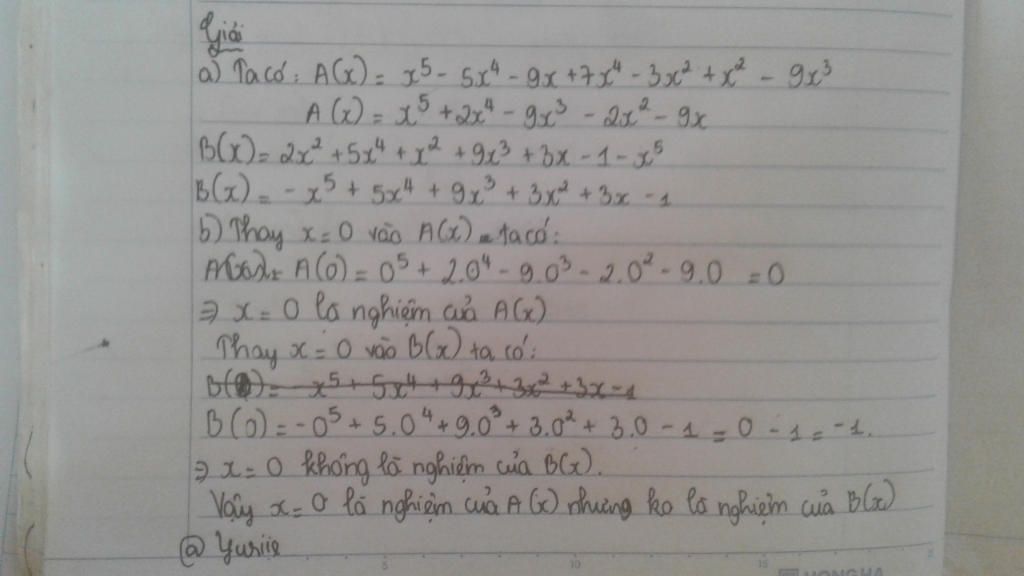 Giải
a) Ta có: A(x) = x⁵ - 5x⁴ - 9x + 7x⁴ - 3x² + x² - 9x³
A(x) = x⁵ + 2x⁴ - 9x³ - 2x² - 9x
B(x) = 2x² + 5x⁴ + x² + 9x³ + 3x - 1 - x⁵
B(x) = - x⁵ + 5x⁴ + 9x³ + 3x² + 3x - 1
b) Thay x = 0 vào A(x) ta có:
A(0) = 0⁵ + 2.0⁴ - 9.0³ - 2.0² - 9.0 = 0
⇒ x = 0 là nghiệm của A(x)
Thay x = 0 vào B(x) ta có:
B(0) = - x⁵ + 5x⁴ + 9x³ + 3x² + 3x - 1
B(0) = -0⁵ + 5.0⁴ + 9.0³ + 3.0² + 3.0 - 1 = 0 - 1 = -1.
⇒ x = 0 không là nghiệm của B(x).
Vậy x = 0 là nghiệm của A(x) nhưng ko là nghiệm của B(x)
@ Yuriie
5 10 15
HONGHA